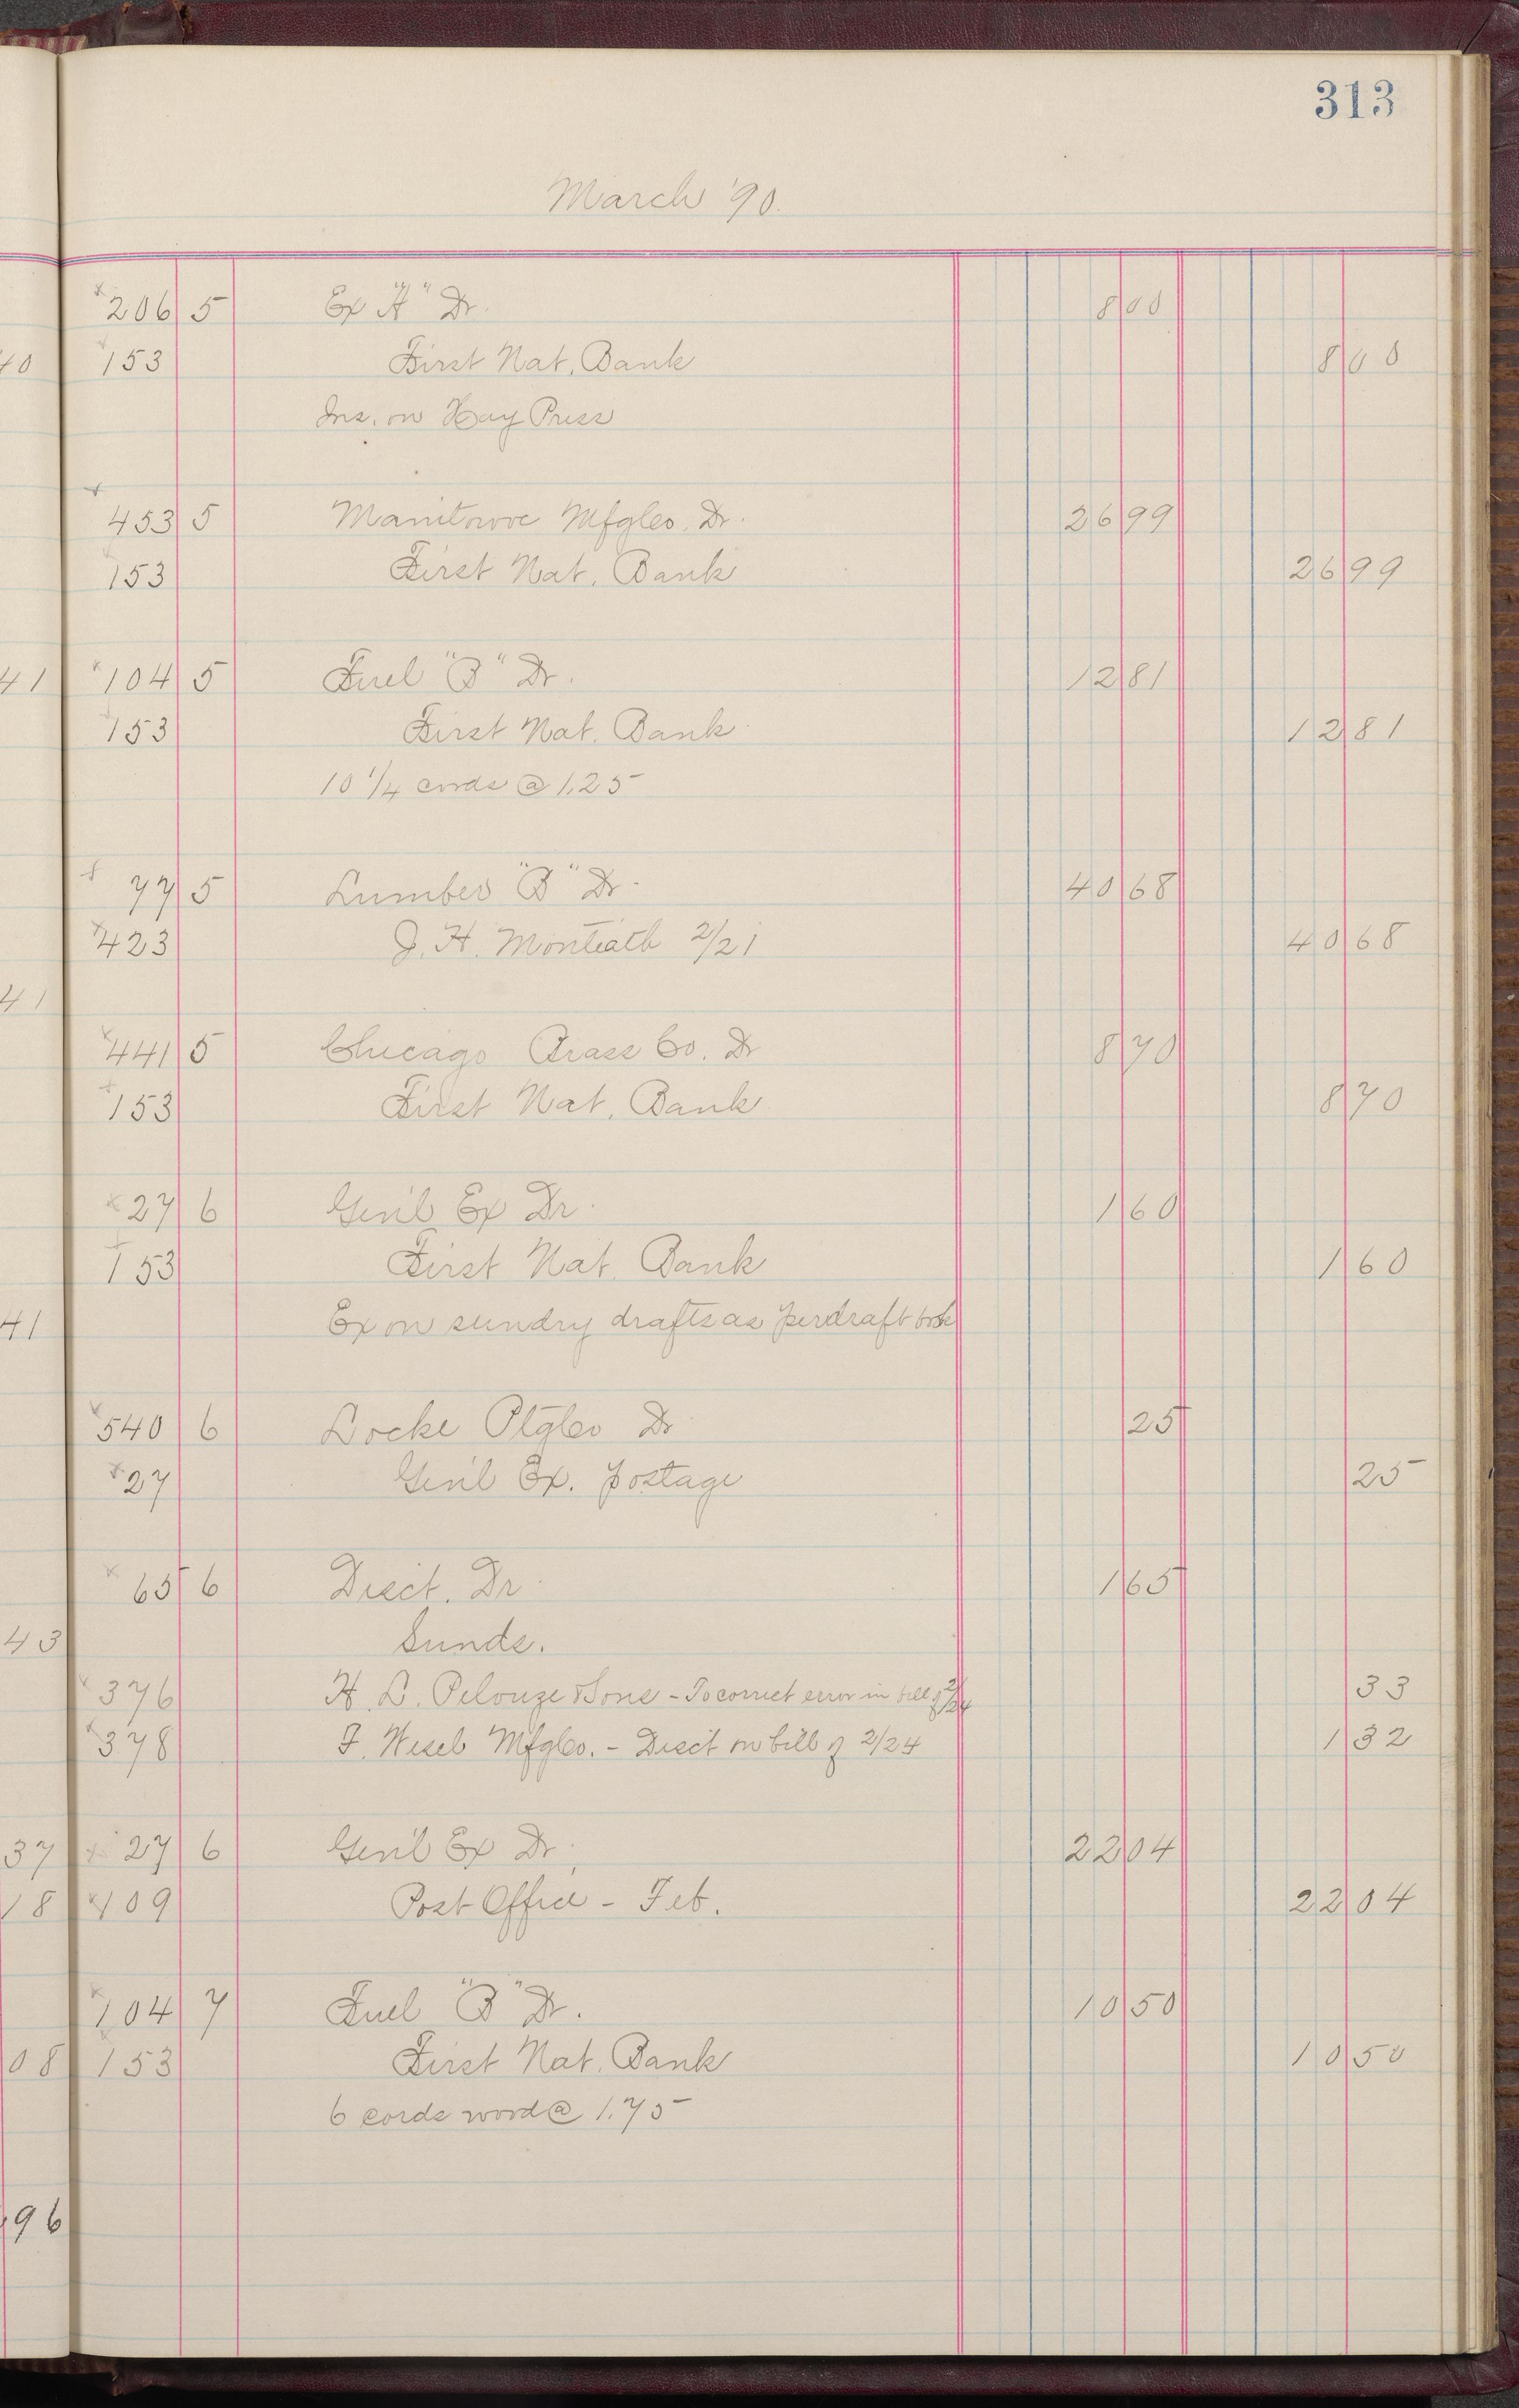 313
March '90.
206 5 Ex "A" Dr. 8 00
40 153 First Nat. Bank 8 00
Ins. on Hay Press
453 5 Manitowoc Mfg Co. Dr. 26 99
153 First Nat. Bank 26 99
41 104 5 Fuel "B" Dr. 12 81
153 First Nat. Bank 12 81
10 1/4 cords @ 1.25
77 5 Lumber "B" Dr. 40 68
423 J. H. Monteath 2/21 40 68
41
441 5 Chicago Brass Co. Dr 8 70
153 First Nat. Bank 8 70
27 6 Gen'l Ex Dr. 1 60
153 First Nat. Bank 1 60
41 Ex on sundry drafts as per draft book
540 6 Locke Ptg Co Dr 25
27 Gen'l Ex. postage 25
65 6 Disct. Dr. 1 65
43 Sunds.
376 H. L. Pelouze & Sons - To correct error in bill of 2/24 33
378 F. Wesel Mfg Co. - Disct on bill of 2/24 1 32
37 27 6 Gen'l Ex Dr. 22 04
18 409 Post Office - Feb. 22 04
104 7 Fuel "B" Dr. 10 50
08 153 First Nat. Bank 10 50
6 cords wood @ 1.75
96